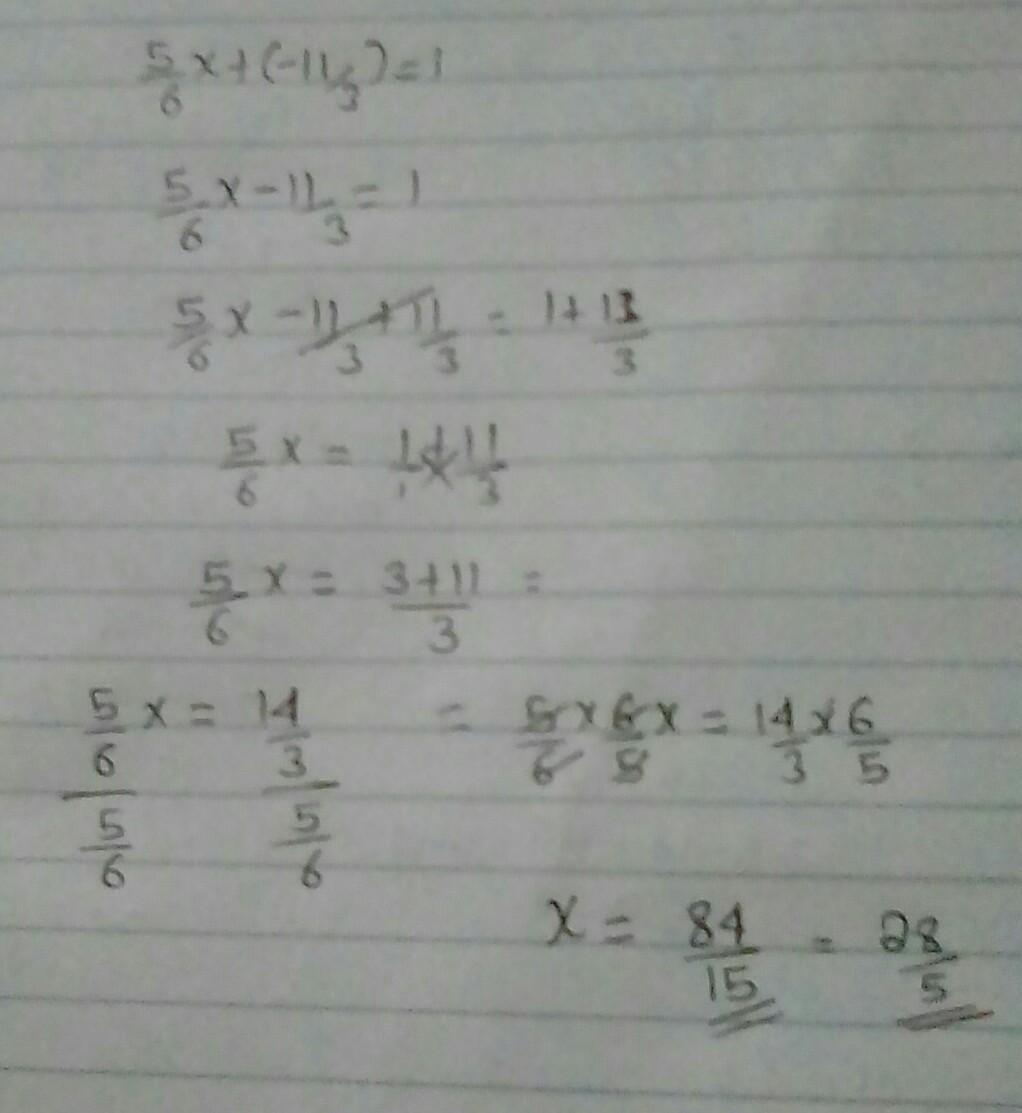 5/6 x + (-11/3) = 1
5/6 x - 11/3 = 1
5/6 x - 11/3 + 11/3 = 1 + 11/3
5/6 x = 1/1 + 11/3
5/6 x = 3+11/3 =
5/6 x / 5/6 = 14/3 / 5/6 = 5/6 × 6/5 x = 14/3 × 6/5
x = 84/15 = 28/5